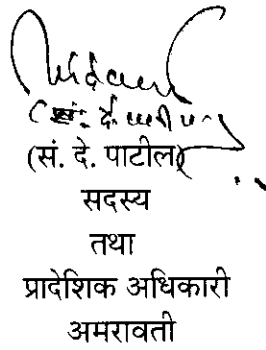 (सं. दे. पाटील)
सदस्य
तथा
प्रादेशिक अधिकारी
अमरावती